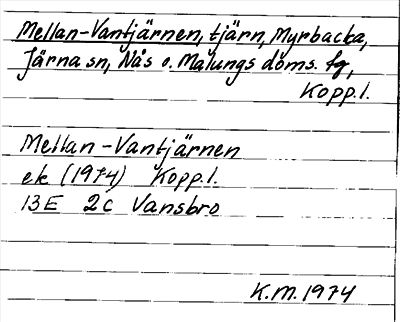 Mellan-Vantjärnen, tjärn, Myrbacka,
Järna sn, Nås o. Malungs doms. fg,
Kopp.l.
Mellan-Vantjärnen
ek (1974) Kopp.l.
13E 2c Vansbro
K.M. 1974